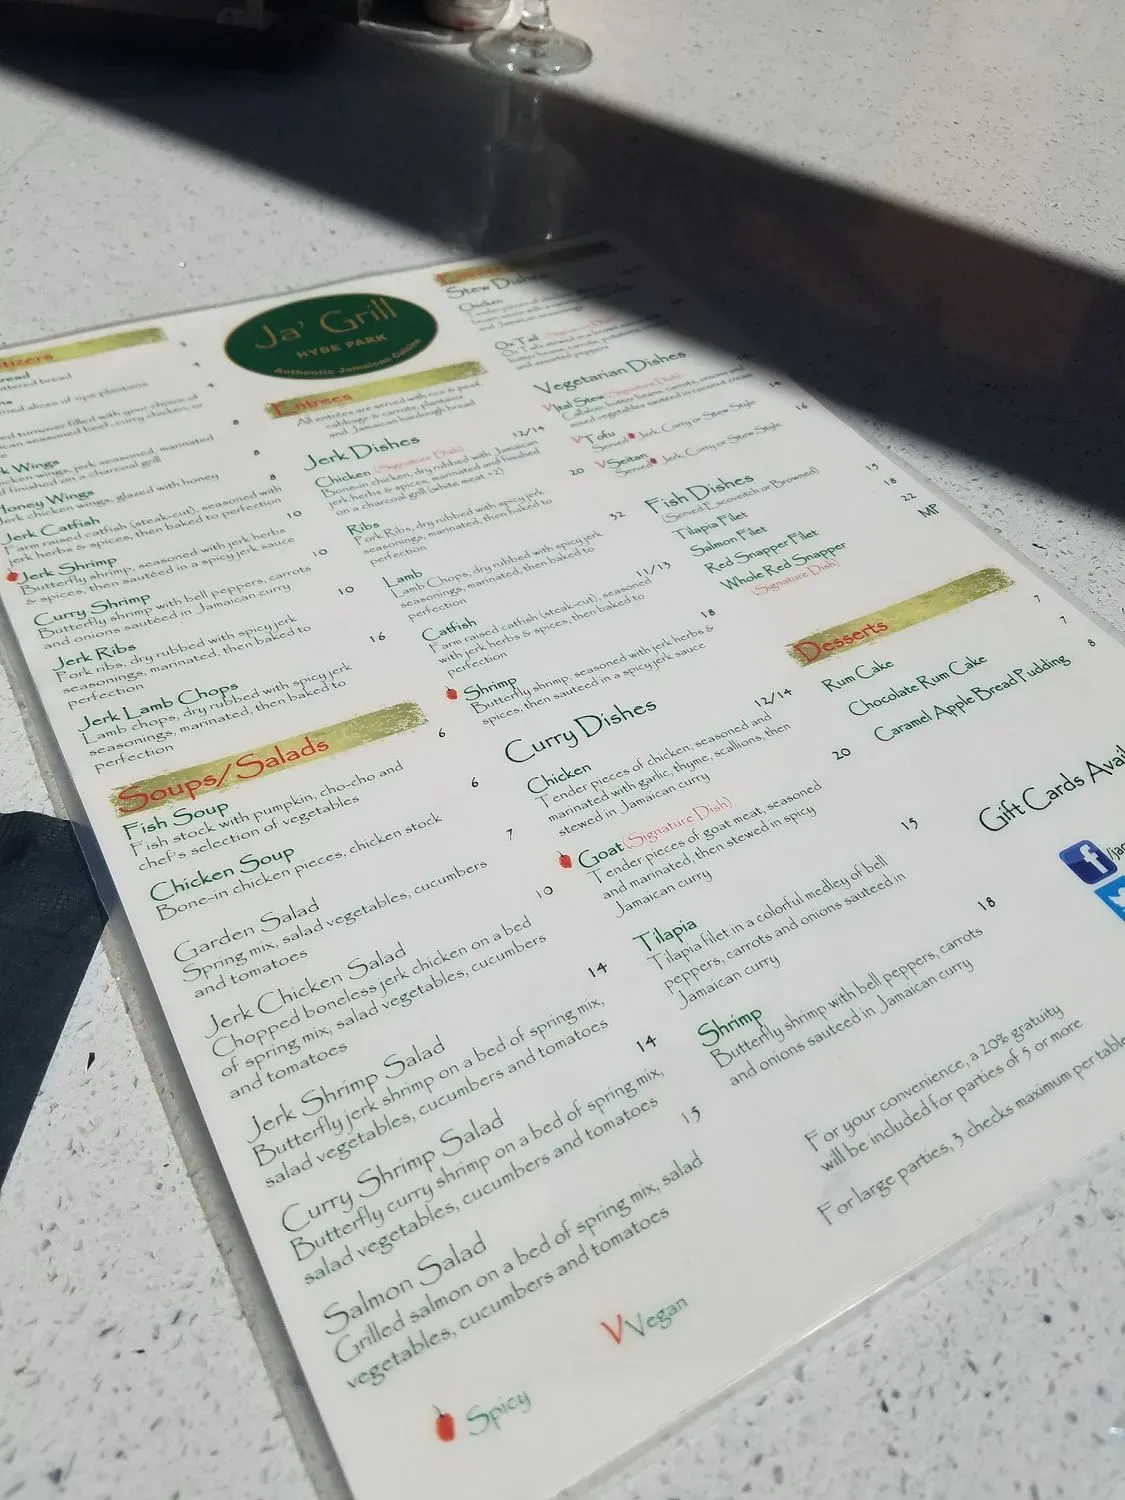 Ja' Grill
HYDE PARK
Authentic Jamaican Cuisine
tizers
read
ttered bread
ried slices of ripe plantains
4
ed turnover filled with your choice of
can seasoned beef, curry chicken, or
8
k Wings
icken wings, jerk seasoned, marinated
d finished on a charcoal grill
8
Honey Wings
Jerk chicken wings, glazed with honey
8
Jerk Catfish
Farm raised catfish (steak-cut), seasoned with
jerk herbs & spices, then baked to perfection
10
Jerk Shrimp
Butterfly shrimp, seasoned with jerk herbs
& spices, then sautéed in a spicy jerk sauce
10
Curry Shrimp
Butterfly shrimp with bell peppers, carrots
and onions sautéed in Jamaican curry
10
Jerk Ribs
Pork ribs, dry rubbed with spicy jerk
seasonings, marinated, then baked to
perfection
16
Jerk Lamb Chops
Lamb chops, dry rubbed with spicy jerk
seasonings, marinated, then baked to
perfection
Soups/Salads
6
Fish Soup
Fish stock with pumpkin, cho-cho and
chef's selection of vegetables
6
Chicken Soup
Bone-in chicken pieces, chicken stock
7
Garden Salad
Spring mix, salad vegetables, cucumbers
and tomatoes
10
Jerk Chicken Salad
Chopped boneless jerk chicken on a bed
of spring mix, salad vegetables, cucumbers
and tomatoes
14
Jerk Shrimp Salad
Butterfly jerk shrimp on a bed of spring mix,
salad vegetables, cucumbers and tomatoes
14
Curry Shrimp Salad
Butterfly curry shrimp on a bed of spring mix,
salad vegetables, cucumbers and tomatoes
15
Salmon Salad
Grilled salmon on a bed of spring mix, salad
vegetables, cucumbers and tomatoes
Spicy
V Vegan
Entrees
All entrées are served with rice & peas
cabbage & carrots, plantains
and Jamaican hardough bread
Jerk Dishes
12/14
Chicken (Signature Dish)
Bone-in chicken, dry rubbed with Jamaican
jerk herbs & spices, marinated and finished
on a charcoal grill (white meat + 2)
20
Ribs
Pork Ribs, dry rubbed with spicy jerk
seasonings, marinated, then baked to
perfection
32
Lamb
Lamb Chops, dry rubbed with spicy jerk
seasonings, marinated, then baked to
perfection
11/13
Catfish
Farm raised catfish (steak-cut), seasoned
with jerk herbs & spices, then baked to
perfection
18
Shrimp
Butterfly shrimp, seasoned with jerk herbs &
spices, then sautéed in a spicy jerk sauce
Curry Dishes
12/14
Chicken
Tender pieces of chicken, seasoned and
marinated with garlic, thyme, scallions, then
stewed in Jamaican curry
20
Goat (Signature Dish)
Tender pieces of goat meat, seasoned
and marinated, then stewed in spicy
Jamaican curry
15
Tilapia
Tilapia filet in a colorful medley of bell
peppers, carrots and onions sauteed in
Jamaican curry
18
Shrimp
Butterfly shrimp with bell peppers, carrots
and onions sauteed in Jamaican curry
Stew Dishes
Chicken
and Jamaican seasonings
Ox Tail
Vegetarian Dishes
Ital Stew (Signature Dish)
Callaloo, butter beans, carrots, onions and
mixed vegetables sauteed in coconut cream
14
V Tofu
Served Jerk Curry or Stew Style
16
V Seitan
Served Jerk, Curry or Stew Style
Fish Dishes
(Served Escovitch or Browned)
Tilapia Filet 15
Salmon Filet 18
Red Snapper Filet 22
Whole Red Snapper MP
(Signature Dish)
Desserts
Rum Cake 7
Chocolate Rum Cake 7
Caramel Apple Bread Pudding 8
Gift Cards Avail
f /ja
For your convenience, a 20% gratuity
will be included for parties of 5 or more
For large parties, 3 checks maximum per table